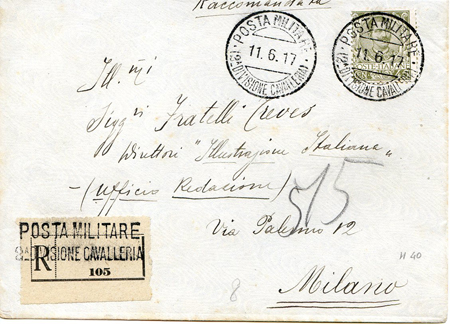 Raccomandata
POSTA MILITARE
11.6.17
2ª DIVISIONE CAVALLERIA
POSTA MILITARE
11.6.17
2ª DIVISIONE CAVALLERIA
POSTE ITALIANE
Ill.mi
Sigg.ri Fratelli Treves
Direttori "Illustrazione Italiana"
(Ufficio Redazione)
515
Via Palermo 12
Milano
POSTA MILITARE
2ª DIVISIONE CAVALLERIA
R
105
H 40
8